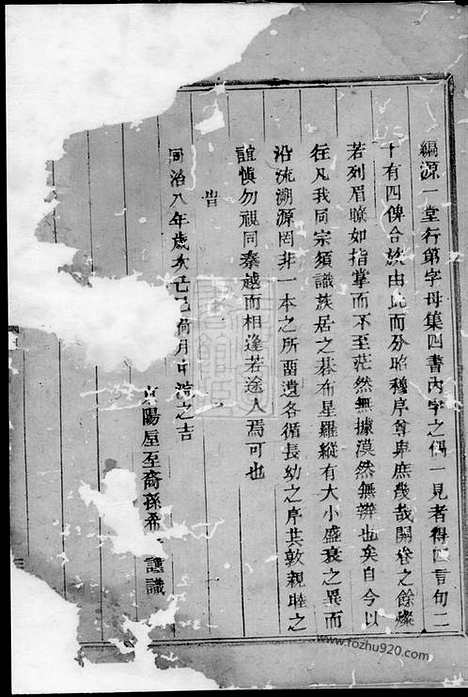 編源一堂行第字母集四書內字之偶一見者得四言句二
十有四俾合族由此而分昭穆序尊卑庶幾哉開卷之餘燦
若列眉瞭如指掌而不至茫然無據漠然無辨也矣自今以
往凡我同宗須識族居之碁布星羅縱有大小盛衰之異而
沿流溯源罔非一本之所畱遺各循長幼之序共敦親睦之
誼慎勿視同秦越而相逢若途人焉可也
旹
同治八年歲次己巳荷月中浣之吉
陽屋至裔孫希 謹識
www.fozhu920.com